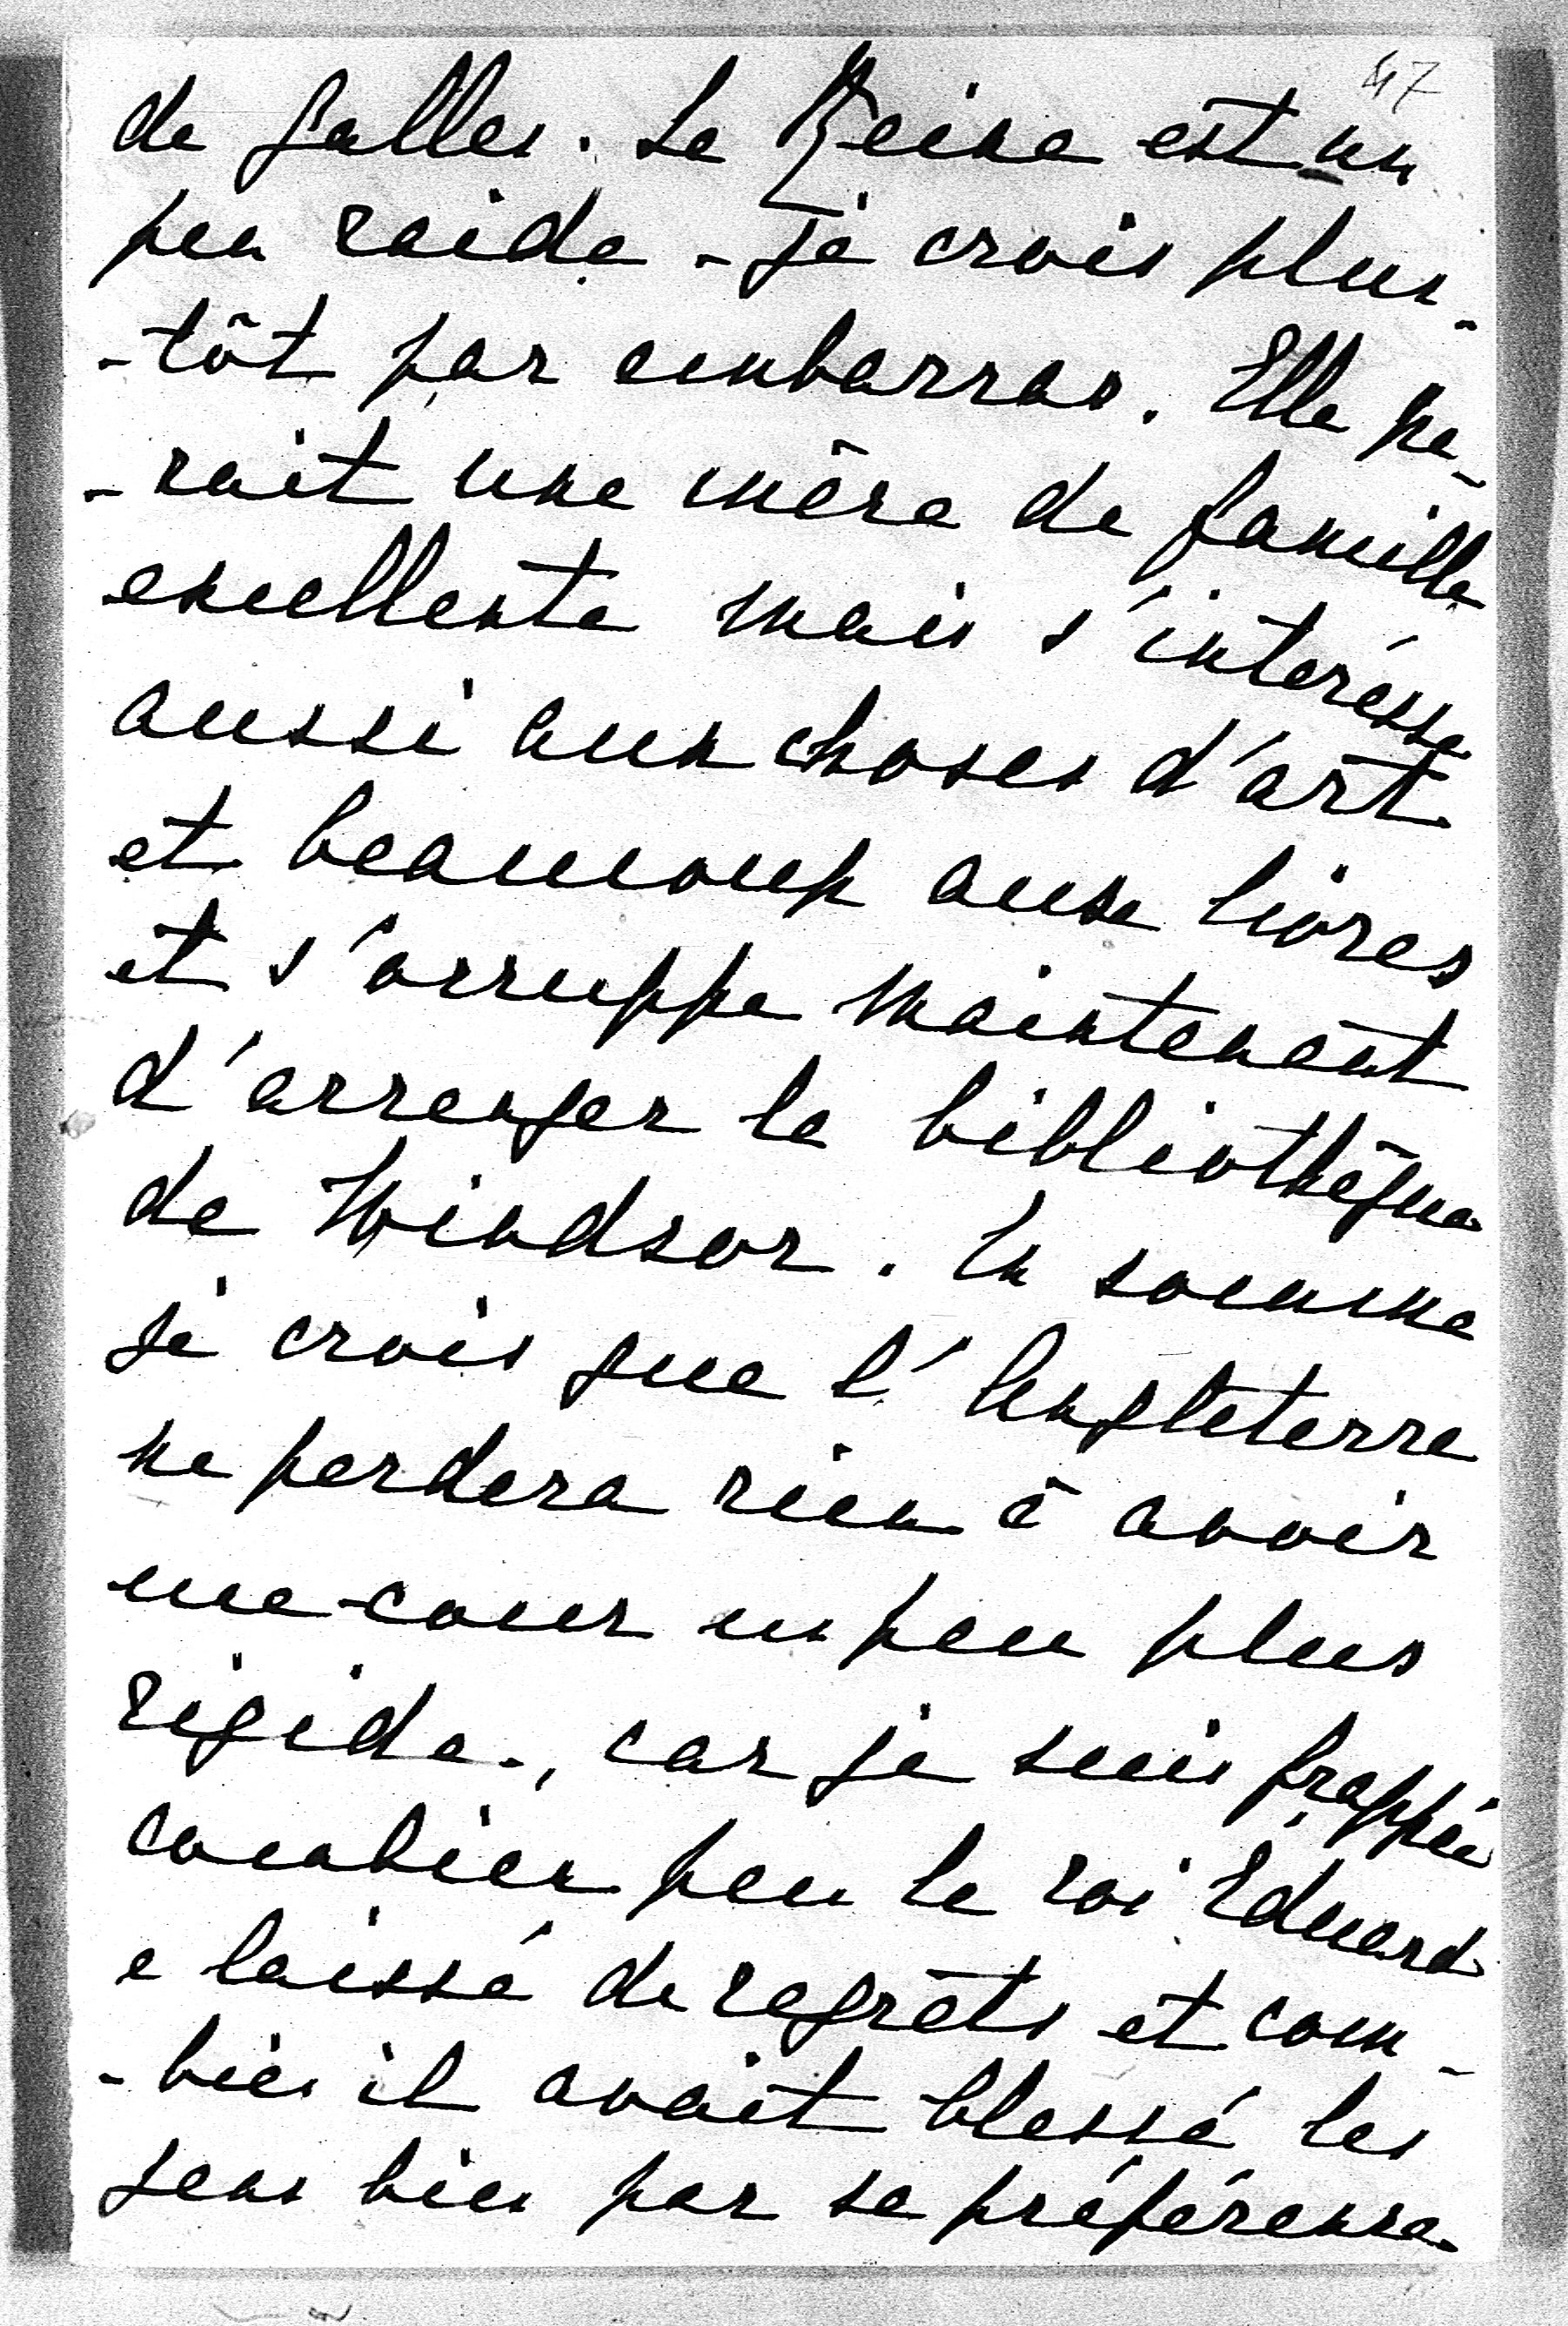 47
de Galles. La Reine est un
peu raide - je crois plus-
-tôt par embarras. Elle pa-
-rait une mère de famille
excellente mais s'intéresse
aussi aux choses d'art
et beaucoup aux livres
et s'occuppe maintenant
d'arranger la bibliothèque
de Windsor. En somme
je crois que l'Angleterre
ne perdera rien à avoir
une cour un peu plus
rigide., car je suis frappée
combien peu le roi Eduard
a laissé de regrêts et com-
-bien il avait blessé les
gens bien par sa préférence